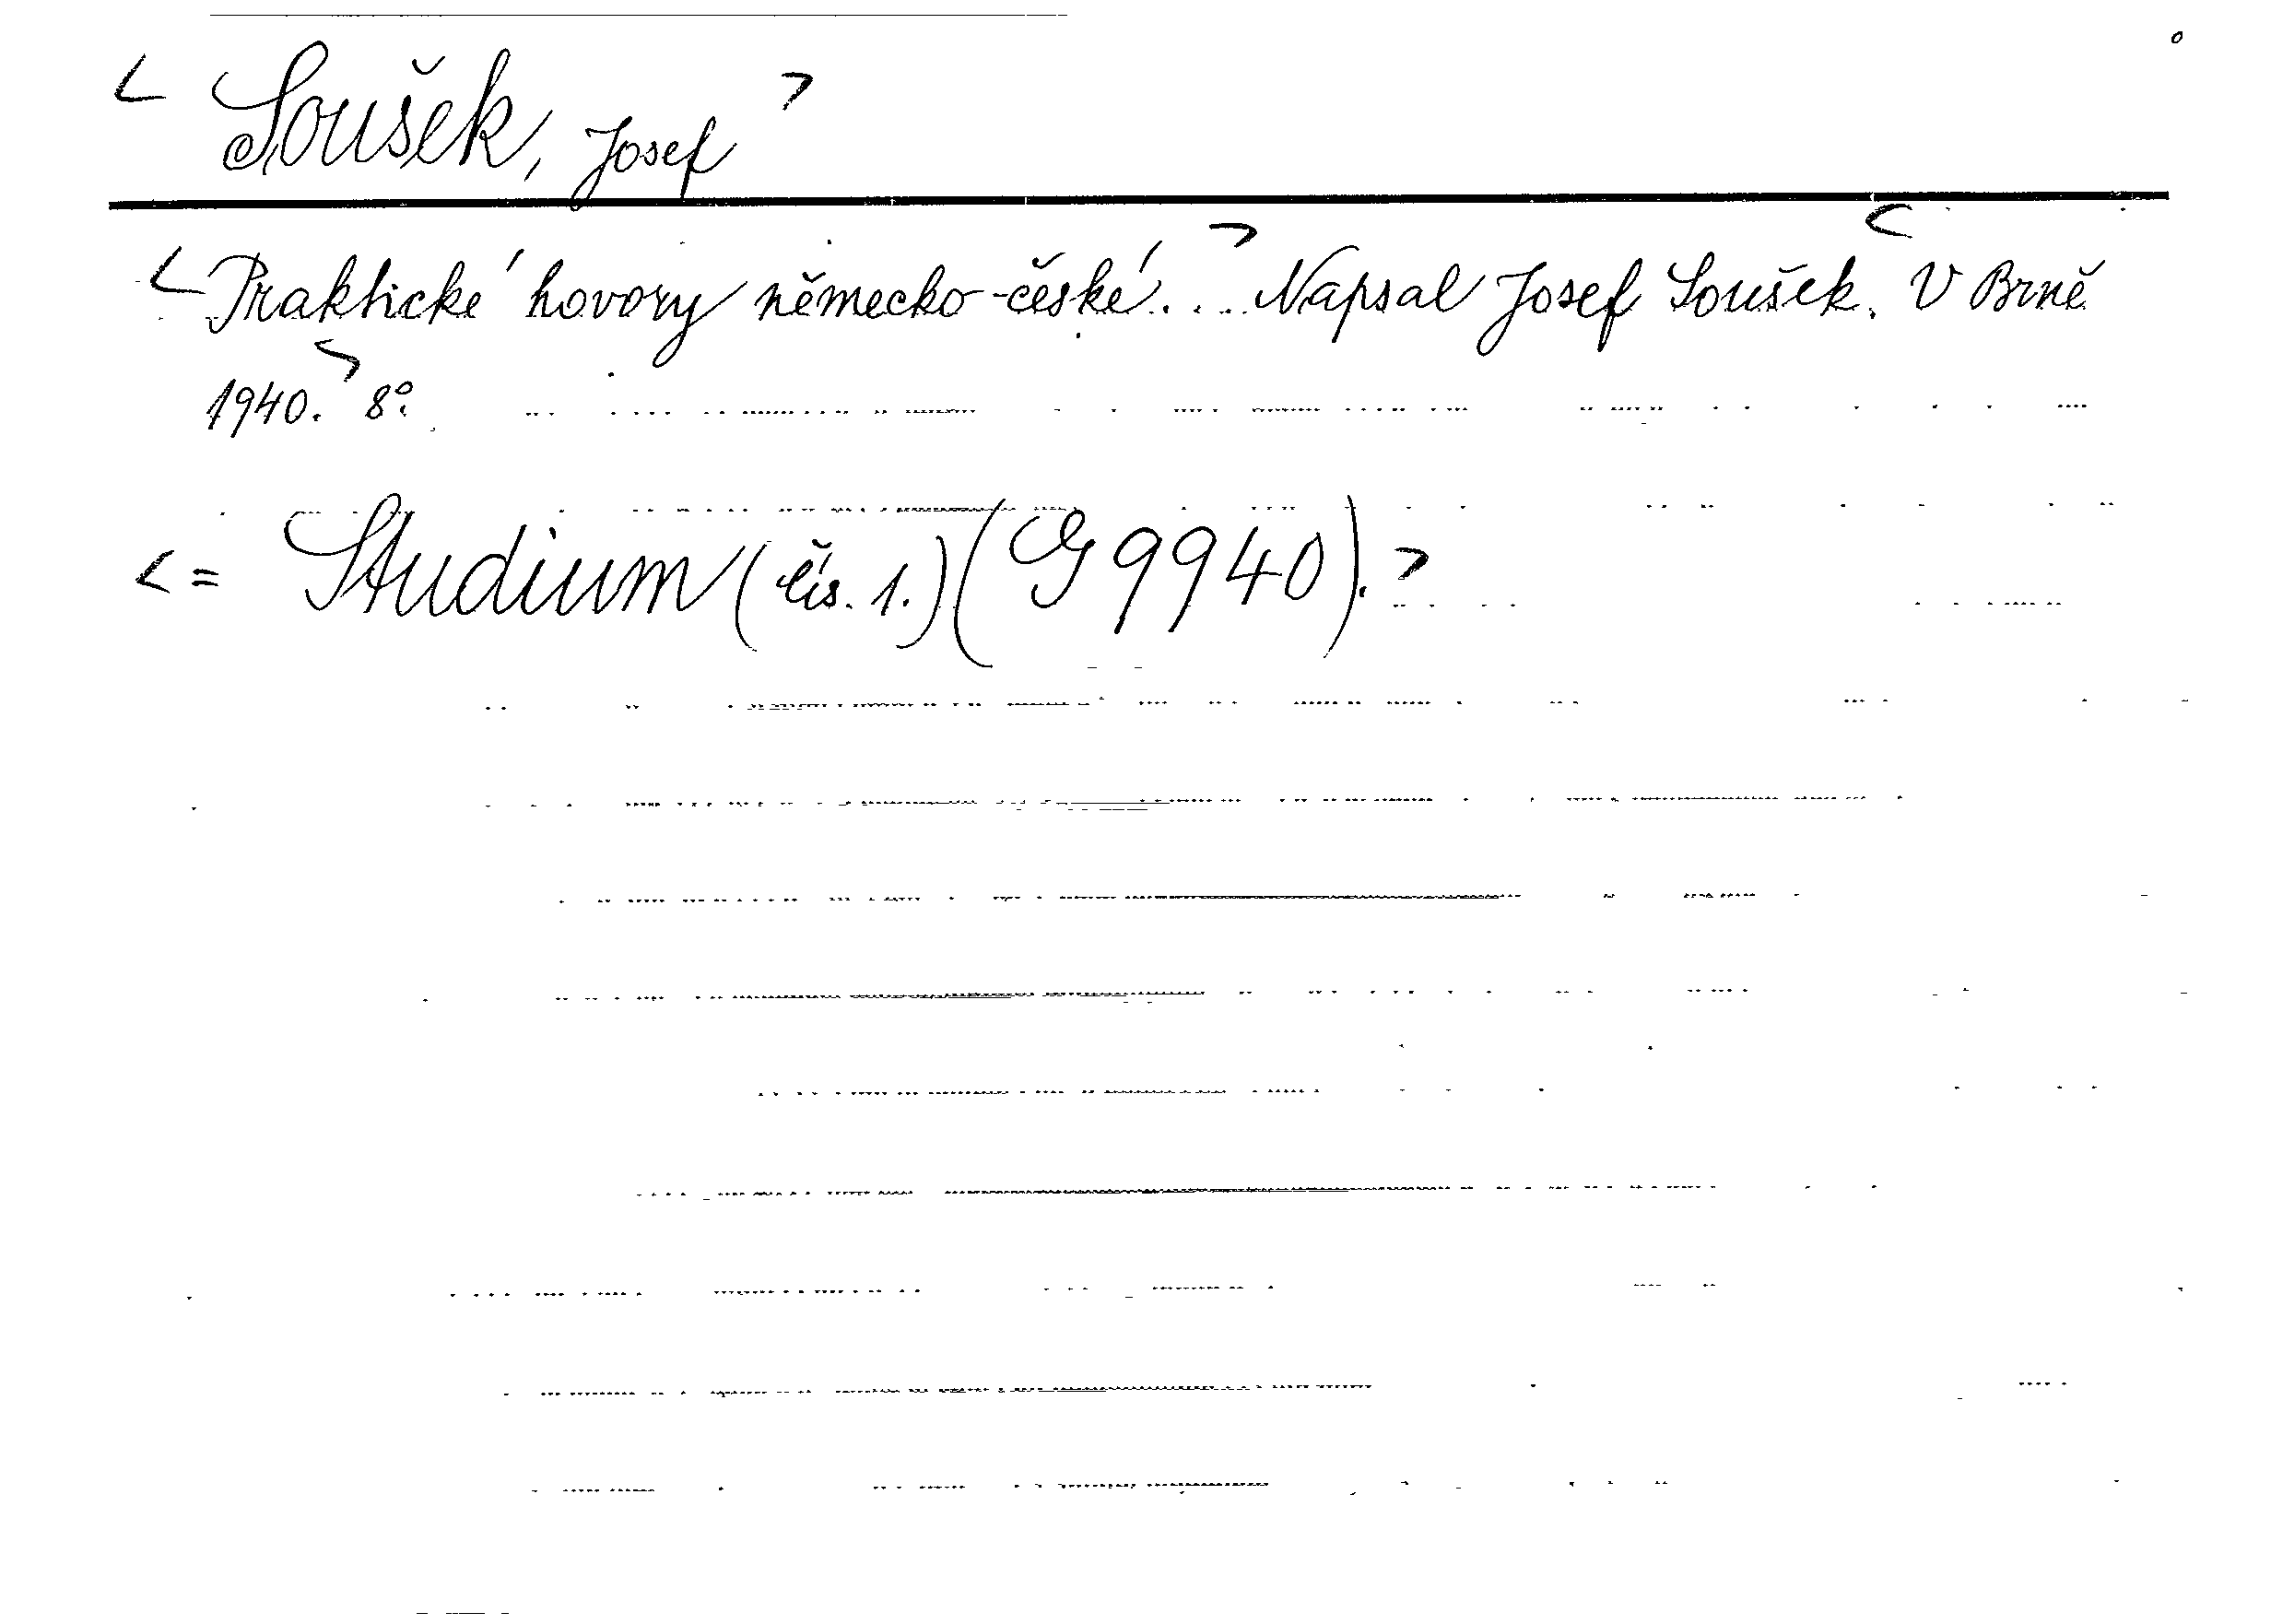 < Soušek, Josef >
< Praktické hovory německo-české... > Napsal Josef Soušek. < V Brně
1940. > 8°.
< = Studium (čís. 1.) (G 9940). >